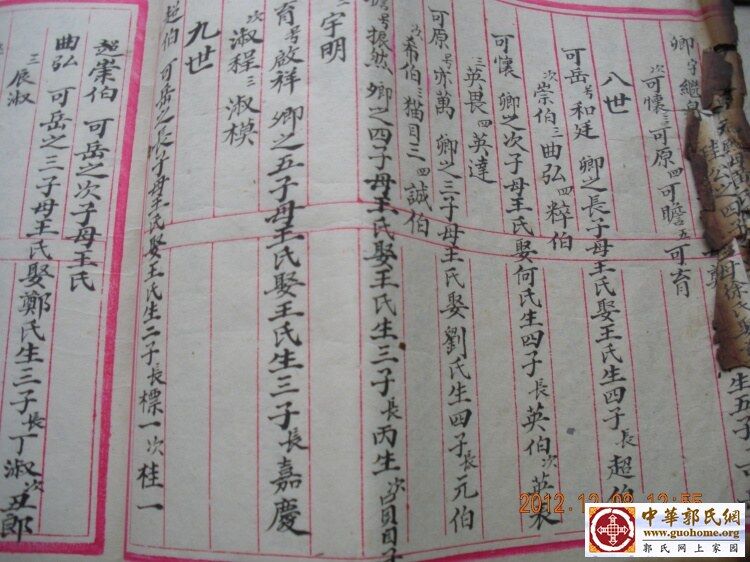 卿 字繼
次可懷 三可原 四可瞻 五可育
八世
可岳 号和廷 卿之長子母王氏娶王氏生四子 長超伯
次崇伯 三曲弘 四粹伯
可懷 卿之次子母王氏娶何氏生四子 長英伯 次英
三英畏 四英達
可原 号亦萬 卿之三子母王氏娶劉氏生四子 長元伯
次希伯 三猫目三 四誠伯
瞻 号振然 卿之四子母王氏娶王氏生三子 長丙生 次
三宇明
育 号啟祥 卿之五子母王氏娶王氏生三子 長嘉慶
次淑程 三淑模
九世
超伯 可岳之長子母王氏娶王氏生二子 長標一 次桂一
崇伯 可岳之次子母王氏
曲弘 可岳之三子母王氏娶鄭氏生三子 長丁淑 次丑郎
三辰淑
2012.12.02 12:55
中華郭氏網
www.guohome.org
郭氏网上家园